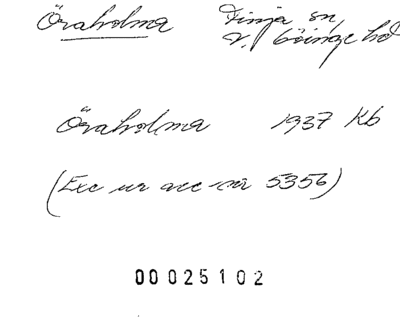 Öraholma Finja sn,
V. Göinge hd
Öraholma 1937 Kb
(Exc ur acc nr 5356)
00025102